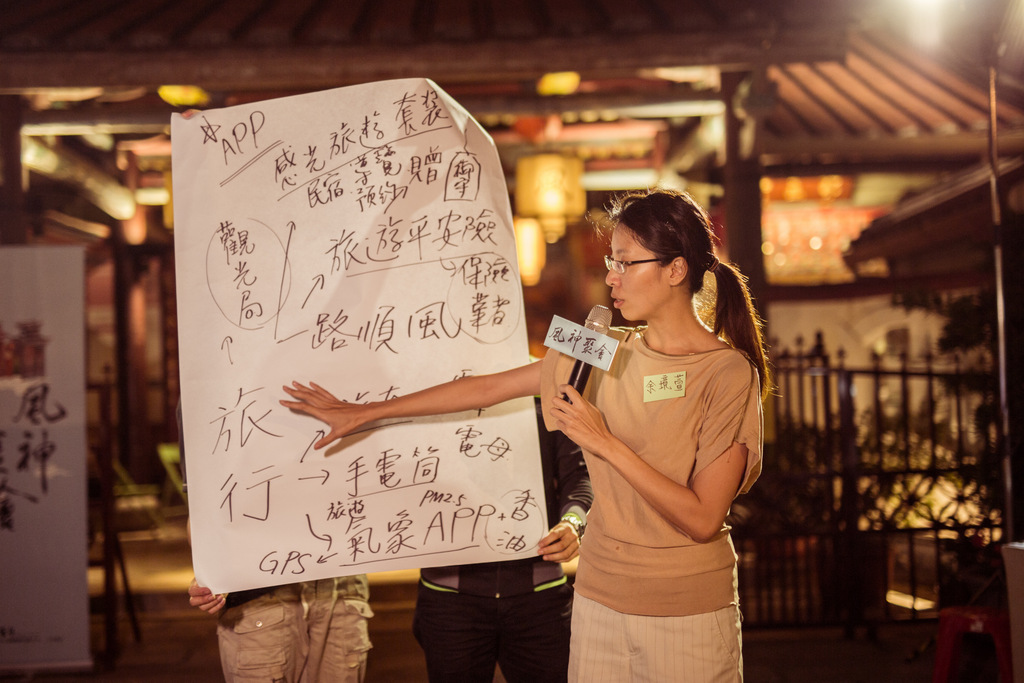 ☆APP
感光旅遊套裝
民宿導覽預約贈
觀光局
旅遊平安險
保險業者
一路順風
旅行
手電筒
電母
旅遊
PM2.5
農氣象APP+香油
GPS
風神聚會
余璟萱
風神